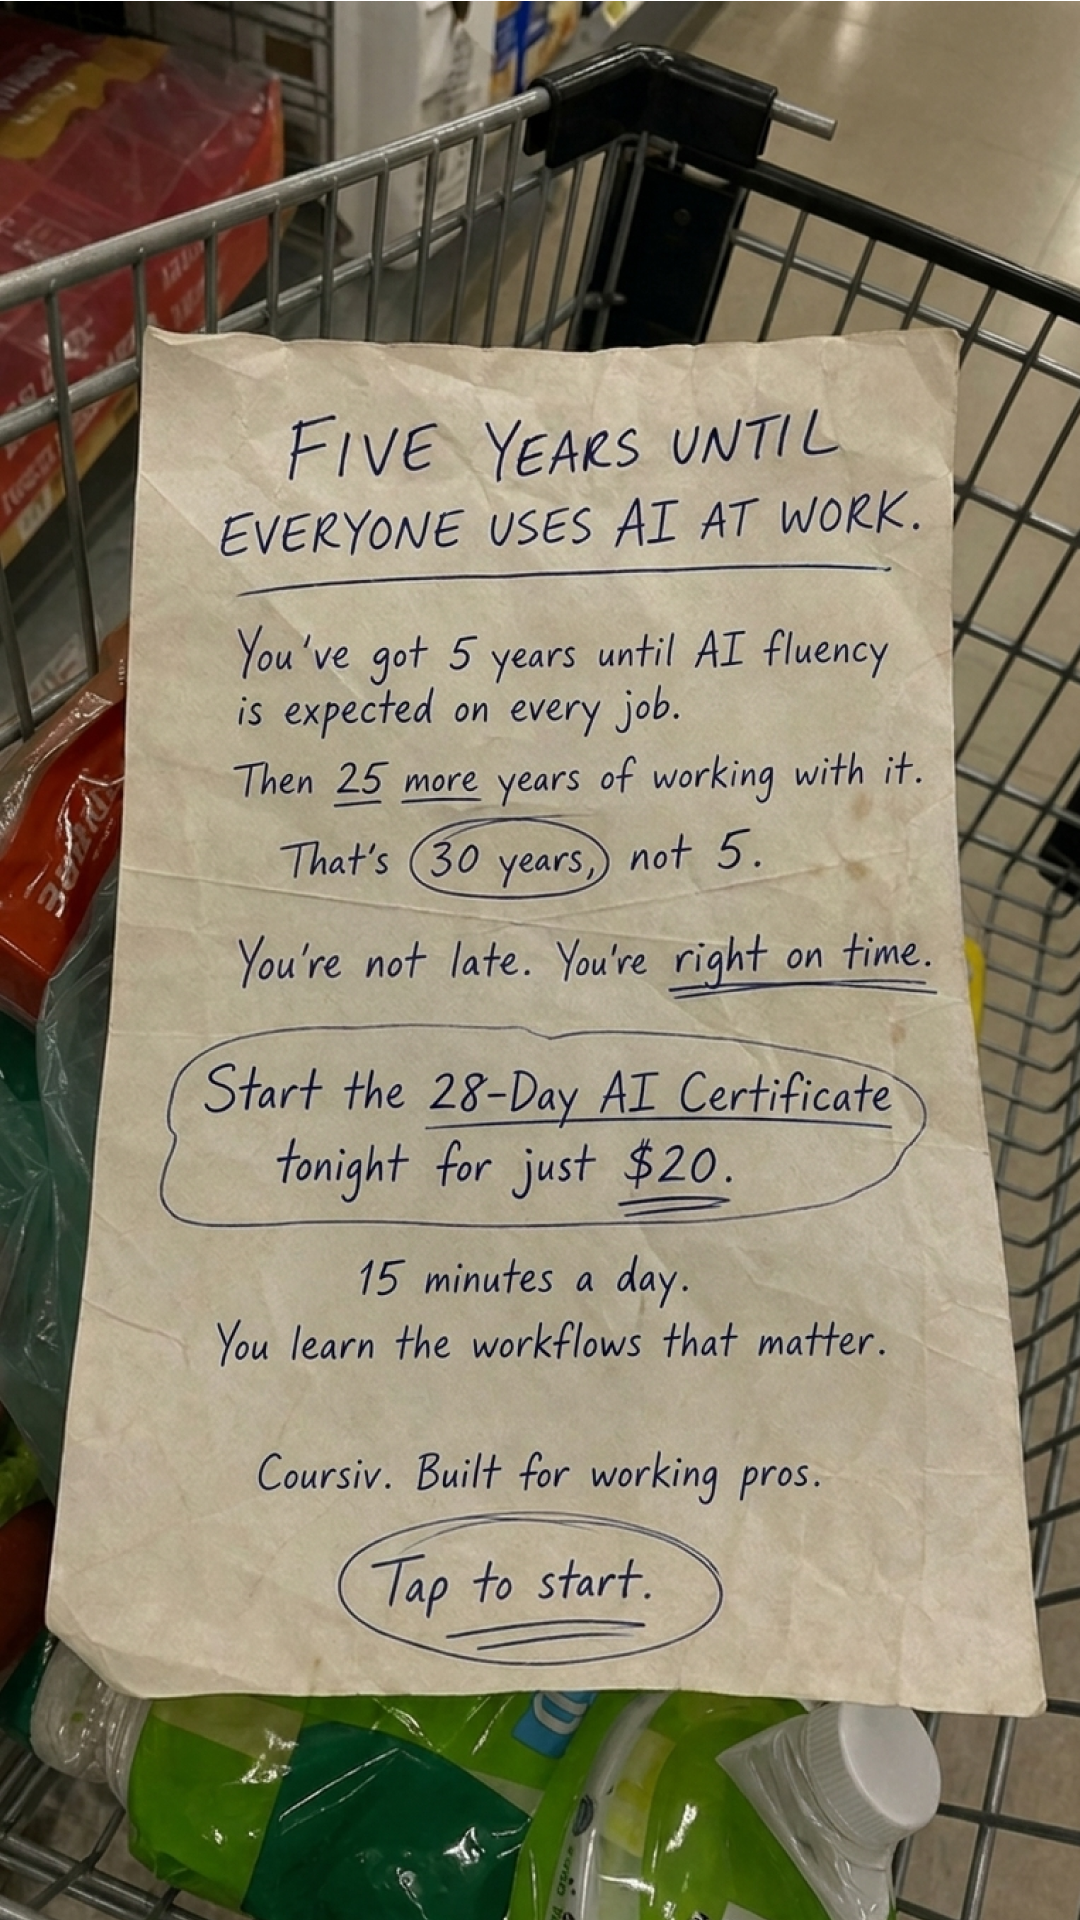 FIVE YEARS UNTIL
EVERYONE USES AI AT WORK.
You've got 5 years until AI fluency
is expected on every job.
Then 25 more years of working with it.
That's 30 years, not 5.
You're not late. You're right on time.
Start the 28-Day AI Certificate
tonight for just $20.
15 minutes a day.
You learn the workflows that matter.
Coursiv. Built for working pros.
Tap to start.